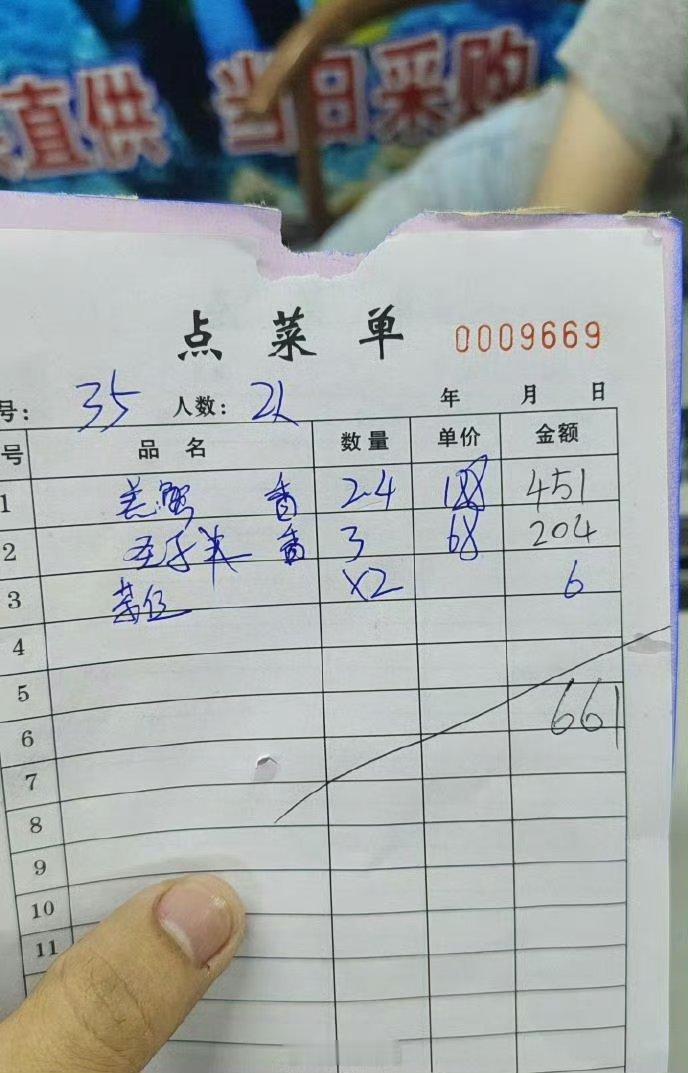 直供 当日采购
点菜单 0009669
号: 35 人数: 2人 年 月 日
号 品名 数量 单价 金额
1 羔蟹 香 2.4 188 451
2 香 3 68 204
3 茶位 ×2 6
4
5
6 661
7
8
9
10
11